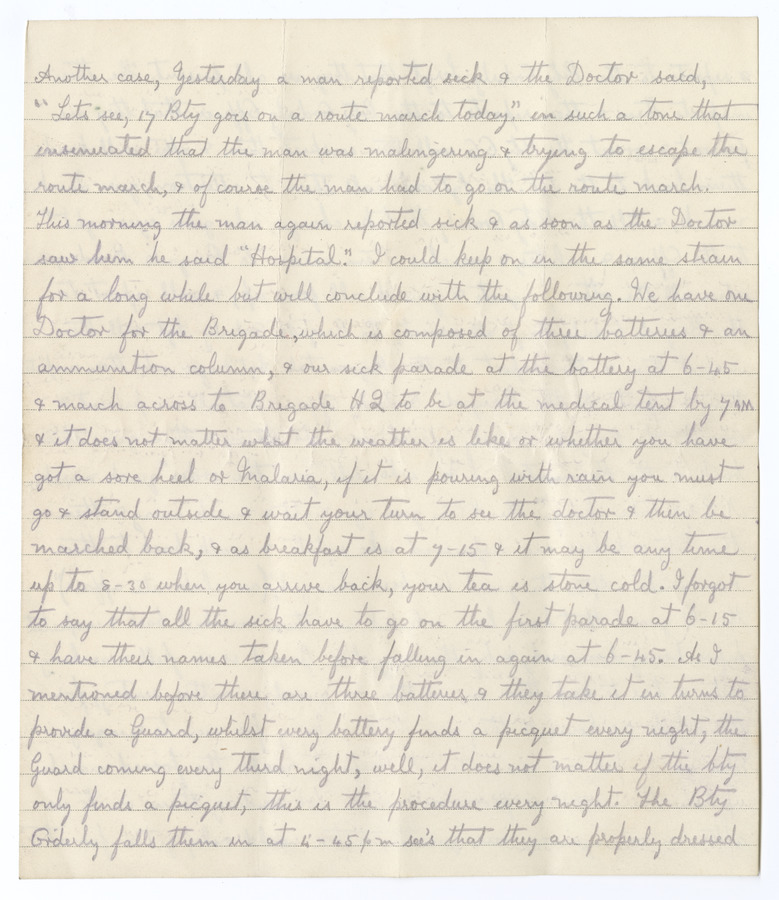 Another case, Yesterday a man reported sick & the Doctor said,
"Lets see, 17 Bty goes on a route march today." in such a tone that
insinuated that the man was malingering & trying to escape the
route march, & of course the man had to go on the route march.
This morning the man again reported sick & as soon as the Doctor
saw him he said "Hospital." I could keep on in the same strain
for a long while but will conclude with the following. We have one
Doctor for the Brigade, which is composed of three batteries & an
ammunition column, & our sick parade at the battery at 6-45
& march across to Brigade HQ to be at the medical tent by 7 AM
& it does not matter what the weather is like or whether you have
got a sore heel or Malaria, if it is pouring with rain you must
go & stand outside & wait your turn to see the doctor & then be
marched back, & as breakfast is at 7-15 & it may be any time
up to 8-30 when you arrive back, your tea is stone cold. I forgot
to say that all the sick have to go on the first parade at 6-15
& have their names taken before falling in again at 6-45. As I
mentioned before there are three batteries, & they take it in turns to
provide a Guard, whilst every battery finds a picquet every night, the
Guard coming every third night, well, it does not matter if the bty
only finds a picquet, this is the procedure every night. The Bty
Orderly falls them in at 4-45 pm see's that they are properly dressed